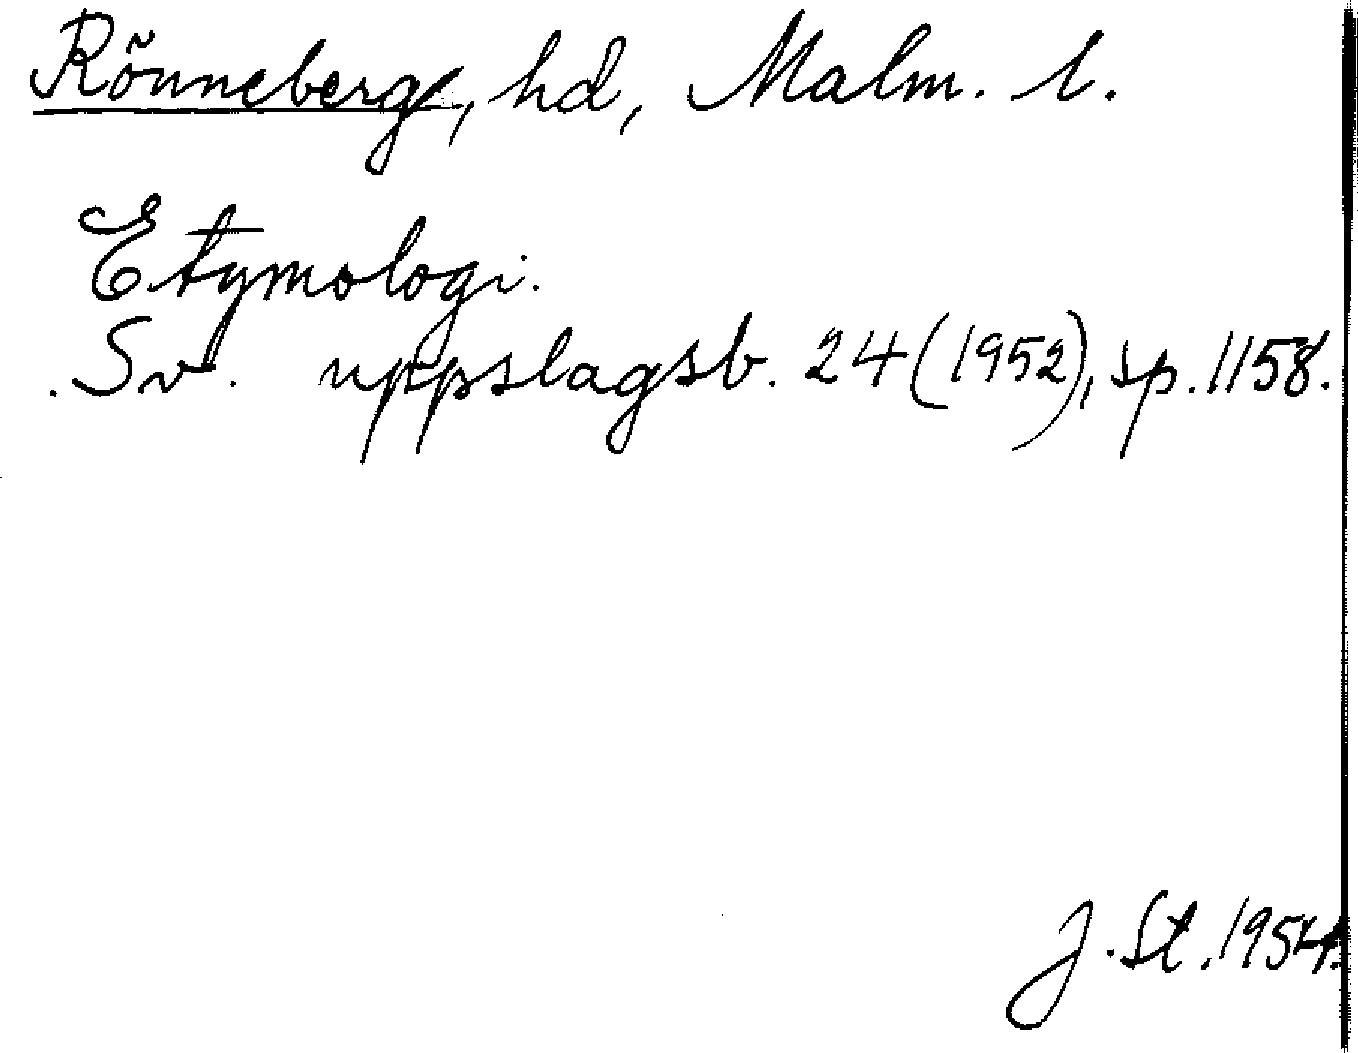 Rönneberg, hd, Malm. l.
Etymologi.
Sv. uppslagsb. 24 (1952), sp. 1158.
J. St. 1954.